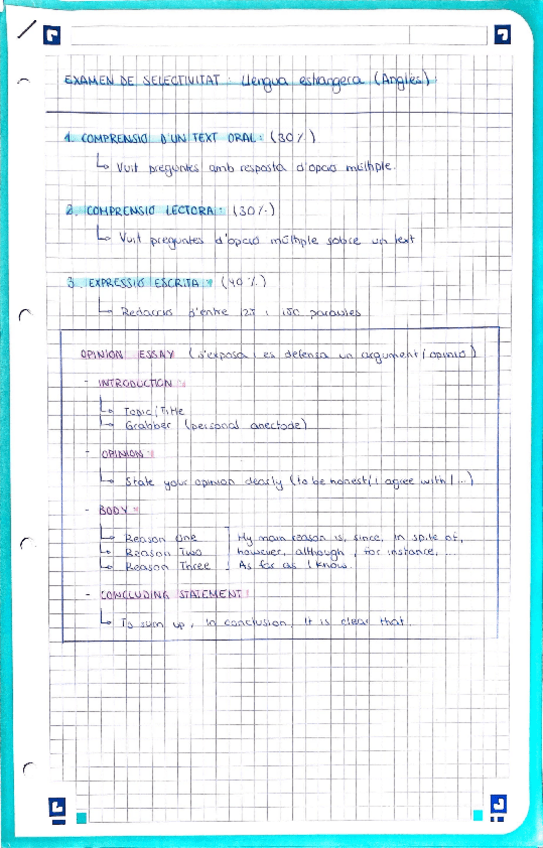 EXAMEN DE SELECTIVITAT: Llengua estrangera (Anglès).
1. COMPRENSIÓ D'UN TEXT ORAL: (30%)
↳ Vuit preguntes amb resposta d'opció múltiple.
2. COMPRENSIÓ LECTORA: (30%)
↳ Vuit preguntes d'opció múltiple sobre un text
3. EXPRESSIÓ ESCRITA: (40%)
↳ Redacció d'entre 125 i 150 paraules
OPINION ESSAY (s'exposa i es defensa un argument/opinió)
- INTRODUCTION:
↳ Topic/Title
↳ Grabber (personal anectode)
- OPINION:
↳ State your opinion clearly (to be honest/I agree with/...)
- BODY:
↳ Reason One
↳ Reason Two
↳ Reason Three
My main reason is, since, in spite of,
however, although, for instance,
As far as I know.
- CONCLUDING STATEMENT:
↳ To sum up, In conclusion, It is clear that.